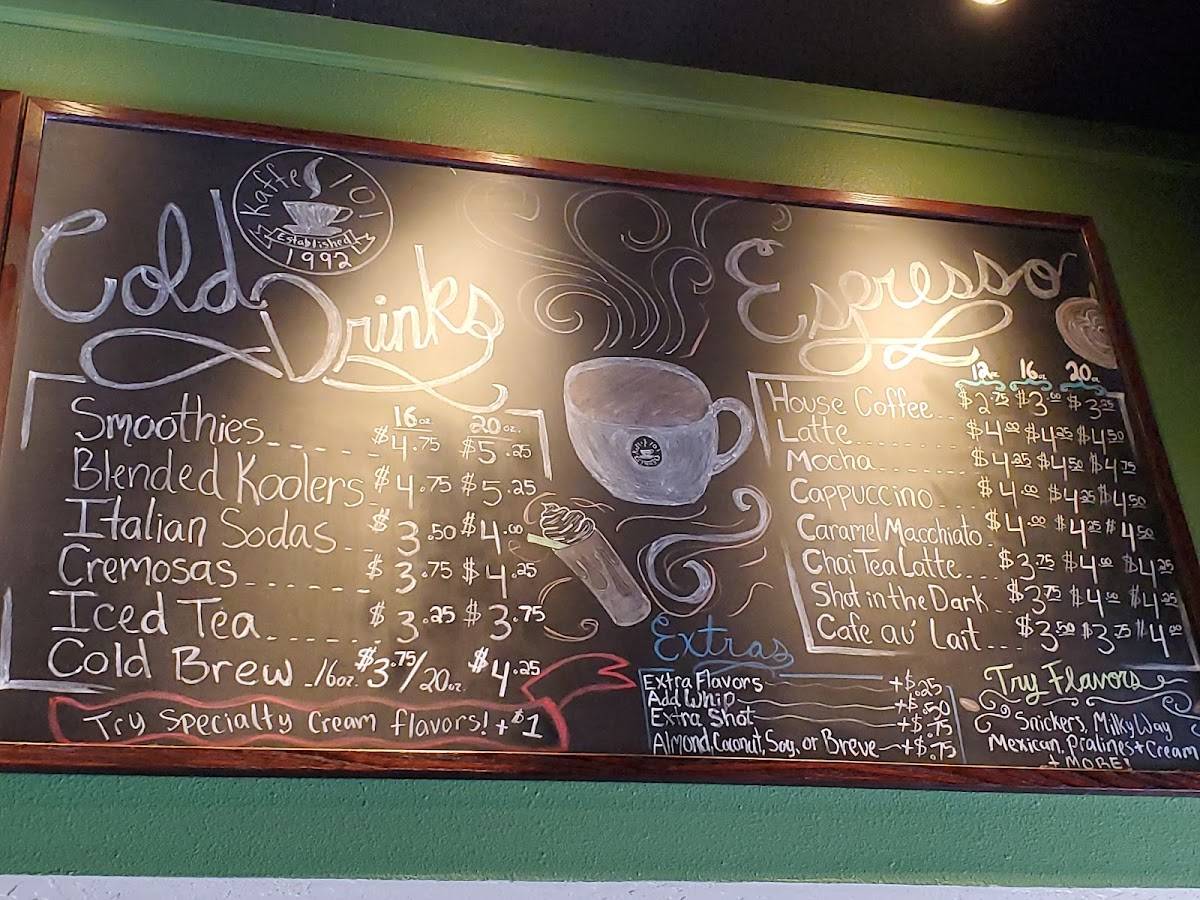 Kaffe 101
Established
1992
Cold
Drinks
16oz. 20oz.
Smoothies $4.75 $5.25
Blended Koolers $4.75 $5.25
Italian Sodas $3.50 $4.00
Cremosas $3.75 $4.25
Iced Tea $3.25 $3.75
Cold Brew 16oz. $3.75/20oz. $4.25
Try Specialty Cream flavors! +$1
Espresso
12oz 16oz 20oz
House Coffee $2.75 $3.00 $3.25
Latte $4.00 $4.25 $4.50
Mocha $4.25 $4.50 $4.75
Cappuccino $4.00 $4.25 $4.50
Caramel Macchiato $4.00 $4.25 $4.50
Chai Tea Latte $3.75 $4.00 $4.25
Shot in the Dark $3.75 $4.00 $4.25
Cafe au' Lait $3.50 $3.75 $4.00
Extras
Extra Flavors +$.25
Add Whip +$.50
Extra Shot +$.75
Almond, Coconut, Soy, or Breve +$.75
Try Flavors
Snickers, Milky Way
Mexican, Pralines + Cream
+ MORE!